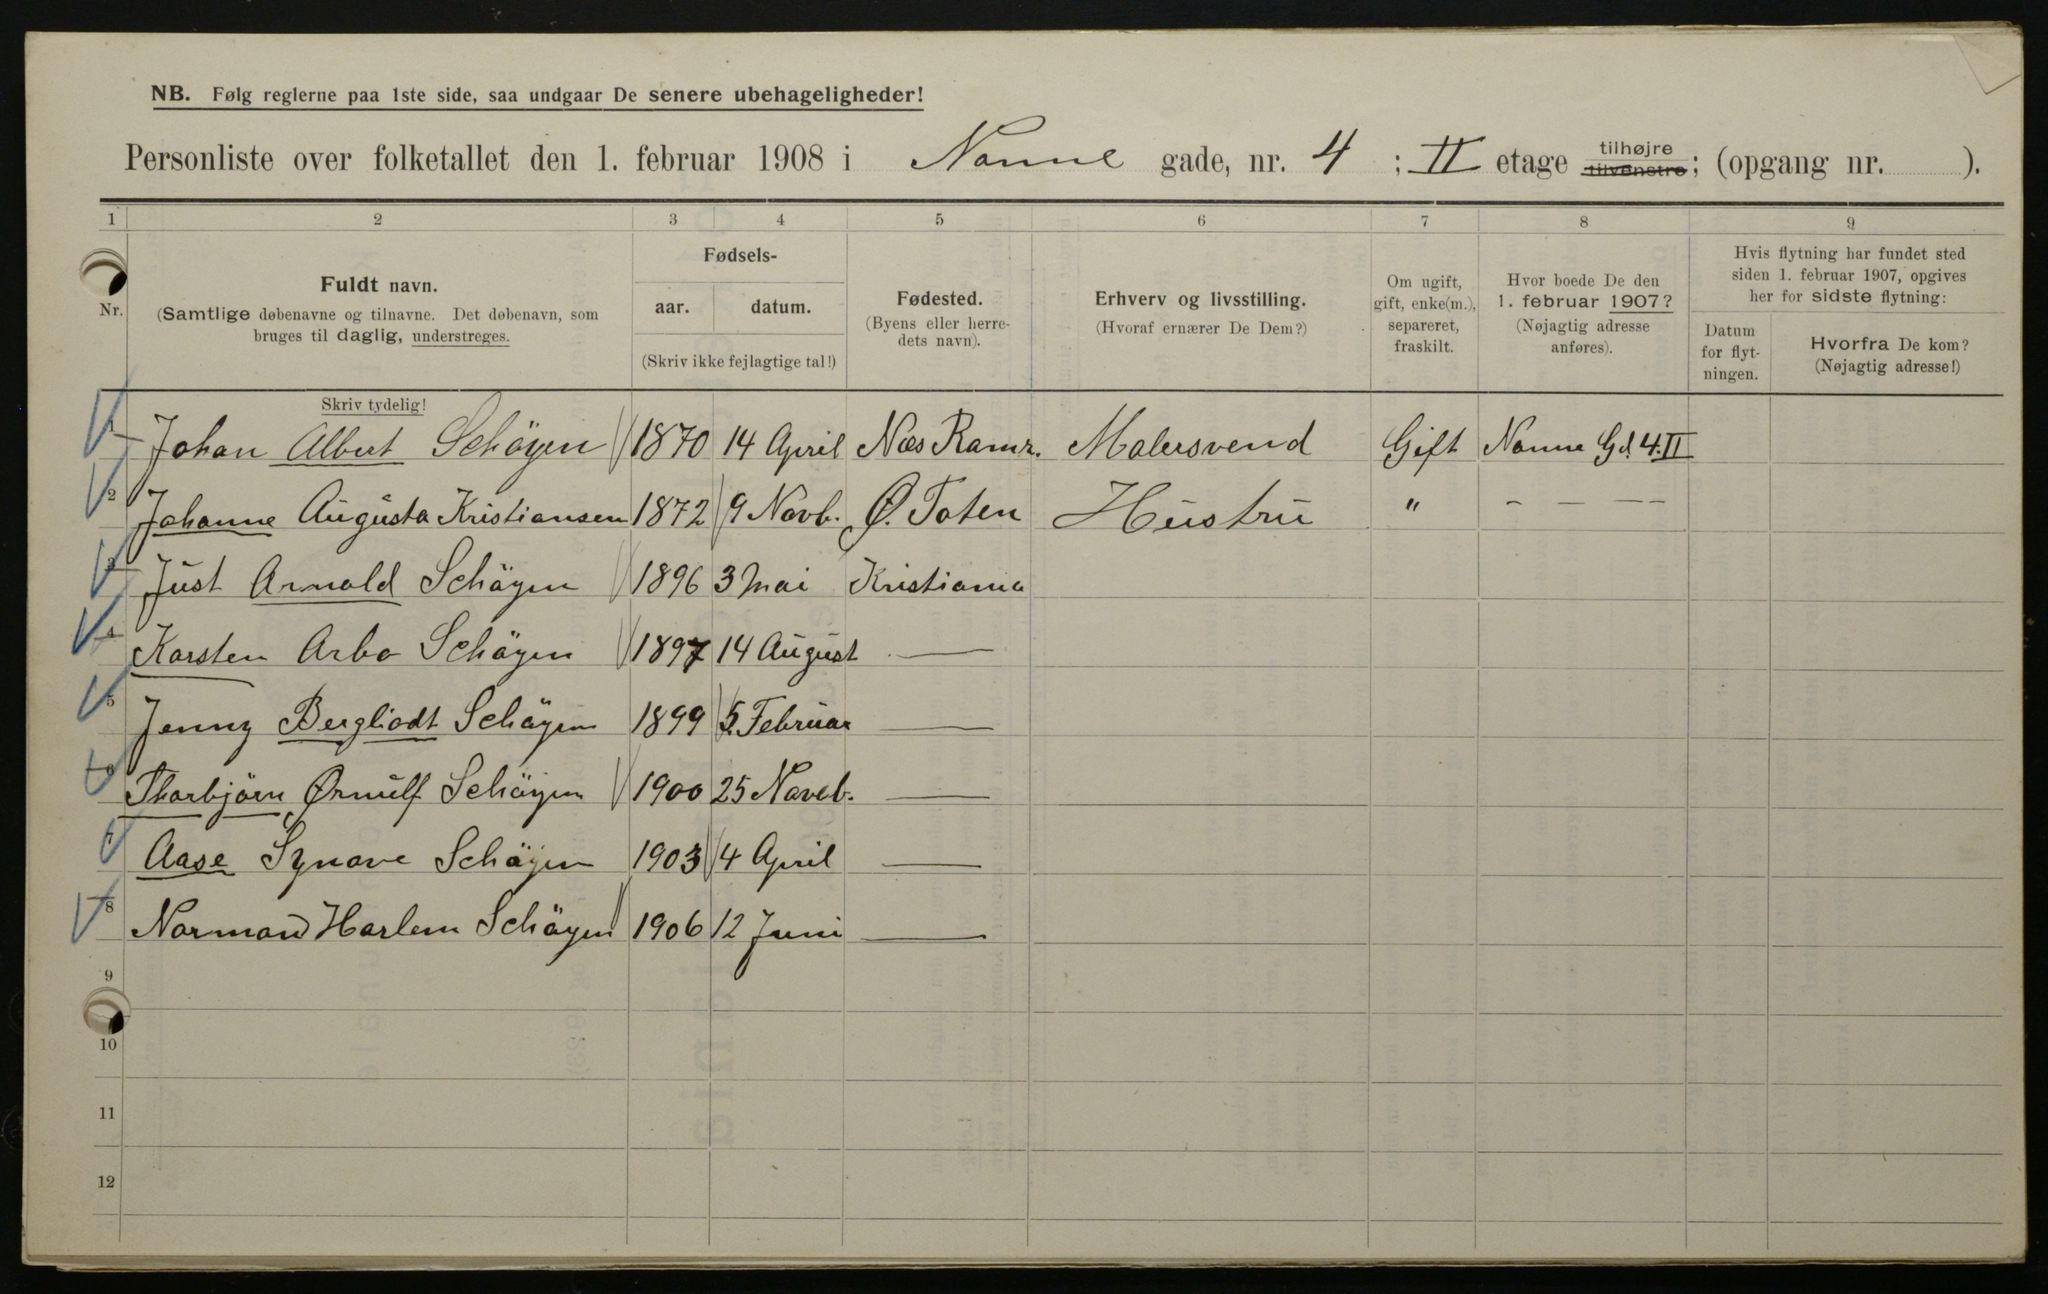 NB. Følg reglerne paa 1ste side, saa undgaar De senere ubehageligheder!
Personliste over folketallet den 1. februar 1908 i Nanne gade, nr. 4 ; II etage tilhøjre tilvenstre; (opgang nr. ).
1 2 3 4 5 6 7 8 9
Nr.
Fuldt navn.
(Samtlige døbenavne og tilnavne. Det døbenavn, som
bruges til daglig, understreges.
Fødsels-
aar. datum.
(Skriv ikke fejlagtige tal!)
Fødested.
(Byens eller herre-
dets navn).
Erhverv og livsstilling.
(Hvoraf ernærer De Dem?)
Om ugift,
gift, enke(m.),
separeret,
fraskilt.
Hvor boede De den
1. februar 1907?
(Nøjagtig adresse
anføres).
Hvis flytning har fundet sted
siden 1. februar 1907, opgives
her for sidste flytning:
Datum
for flyt-
ningen.
Hvorfra De kom?
(Nøjagtig adresse!)
Skriv tydelig!
1 Johan Albert Schöyen 1870 14 April Næs Ramr. Malersvend Gift Nanne Gd. 4. II
2 Johanne Augusta Kristiansen 1872 9 Novb. Ø. Toten Hustru " - — —
3 Just Arnold Schöyen 1896 3 Mai Kristiania
4 Karsten Arbo Schöyen 1897 14 August —
5 Jenny Bergliodt Schöyen 1899 5. Februar —
6 Thorbjörn Ørnulf Schöyen 1900 25 Noveb. —
7 Aase Synøve Schöyen 1903 4 April —
8 Norman Harlem Schöyen 1906 12 Juni —
9
10
11
12